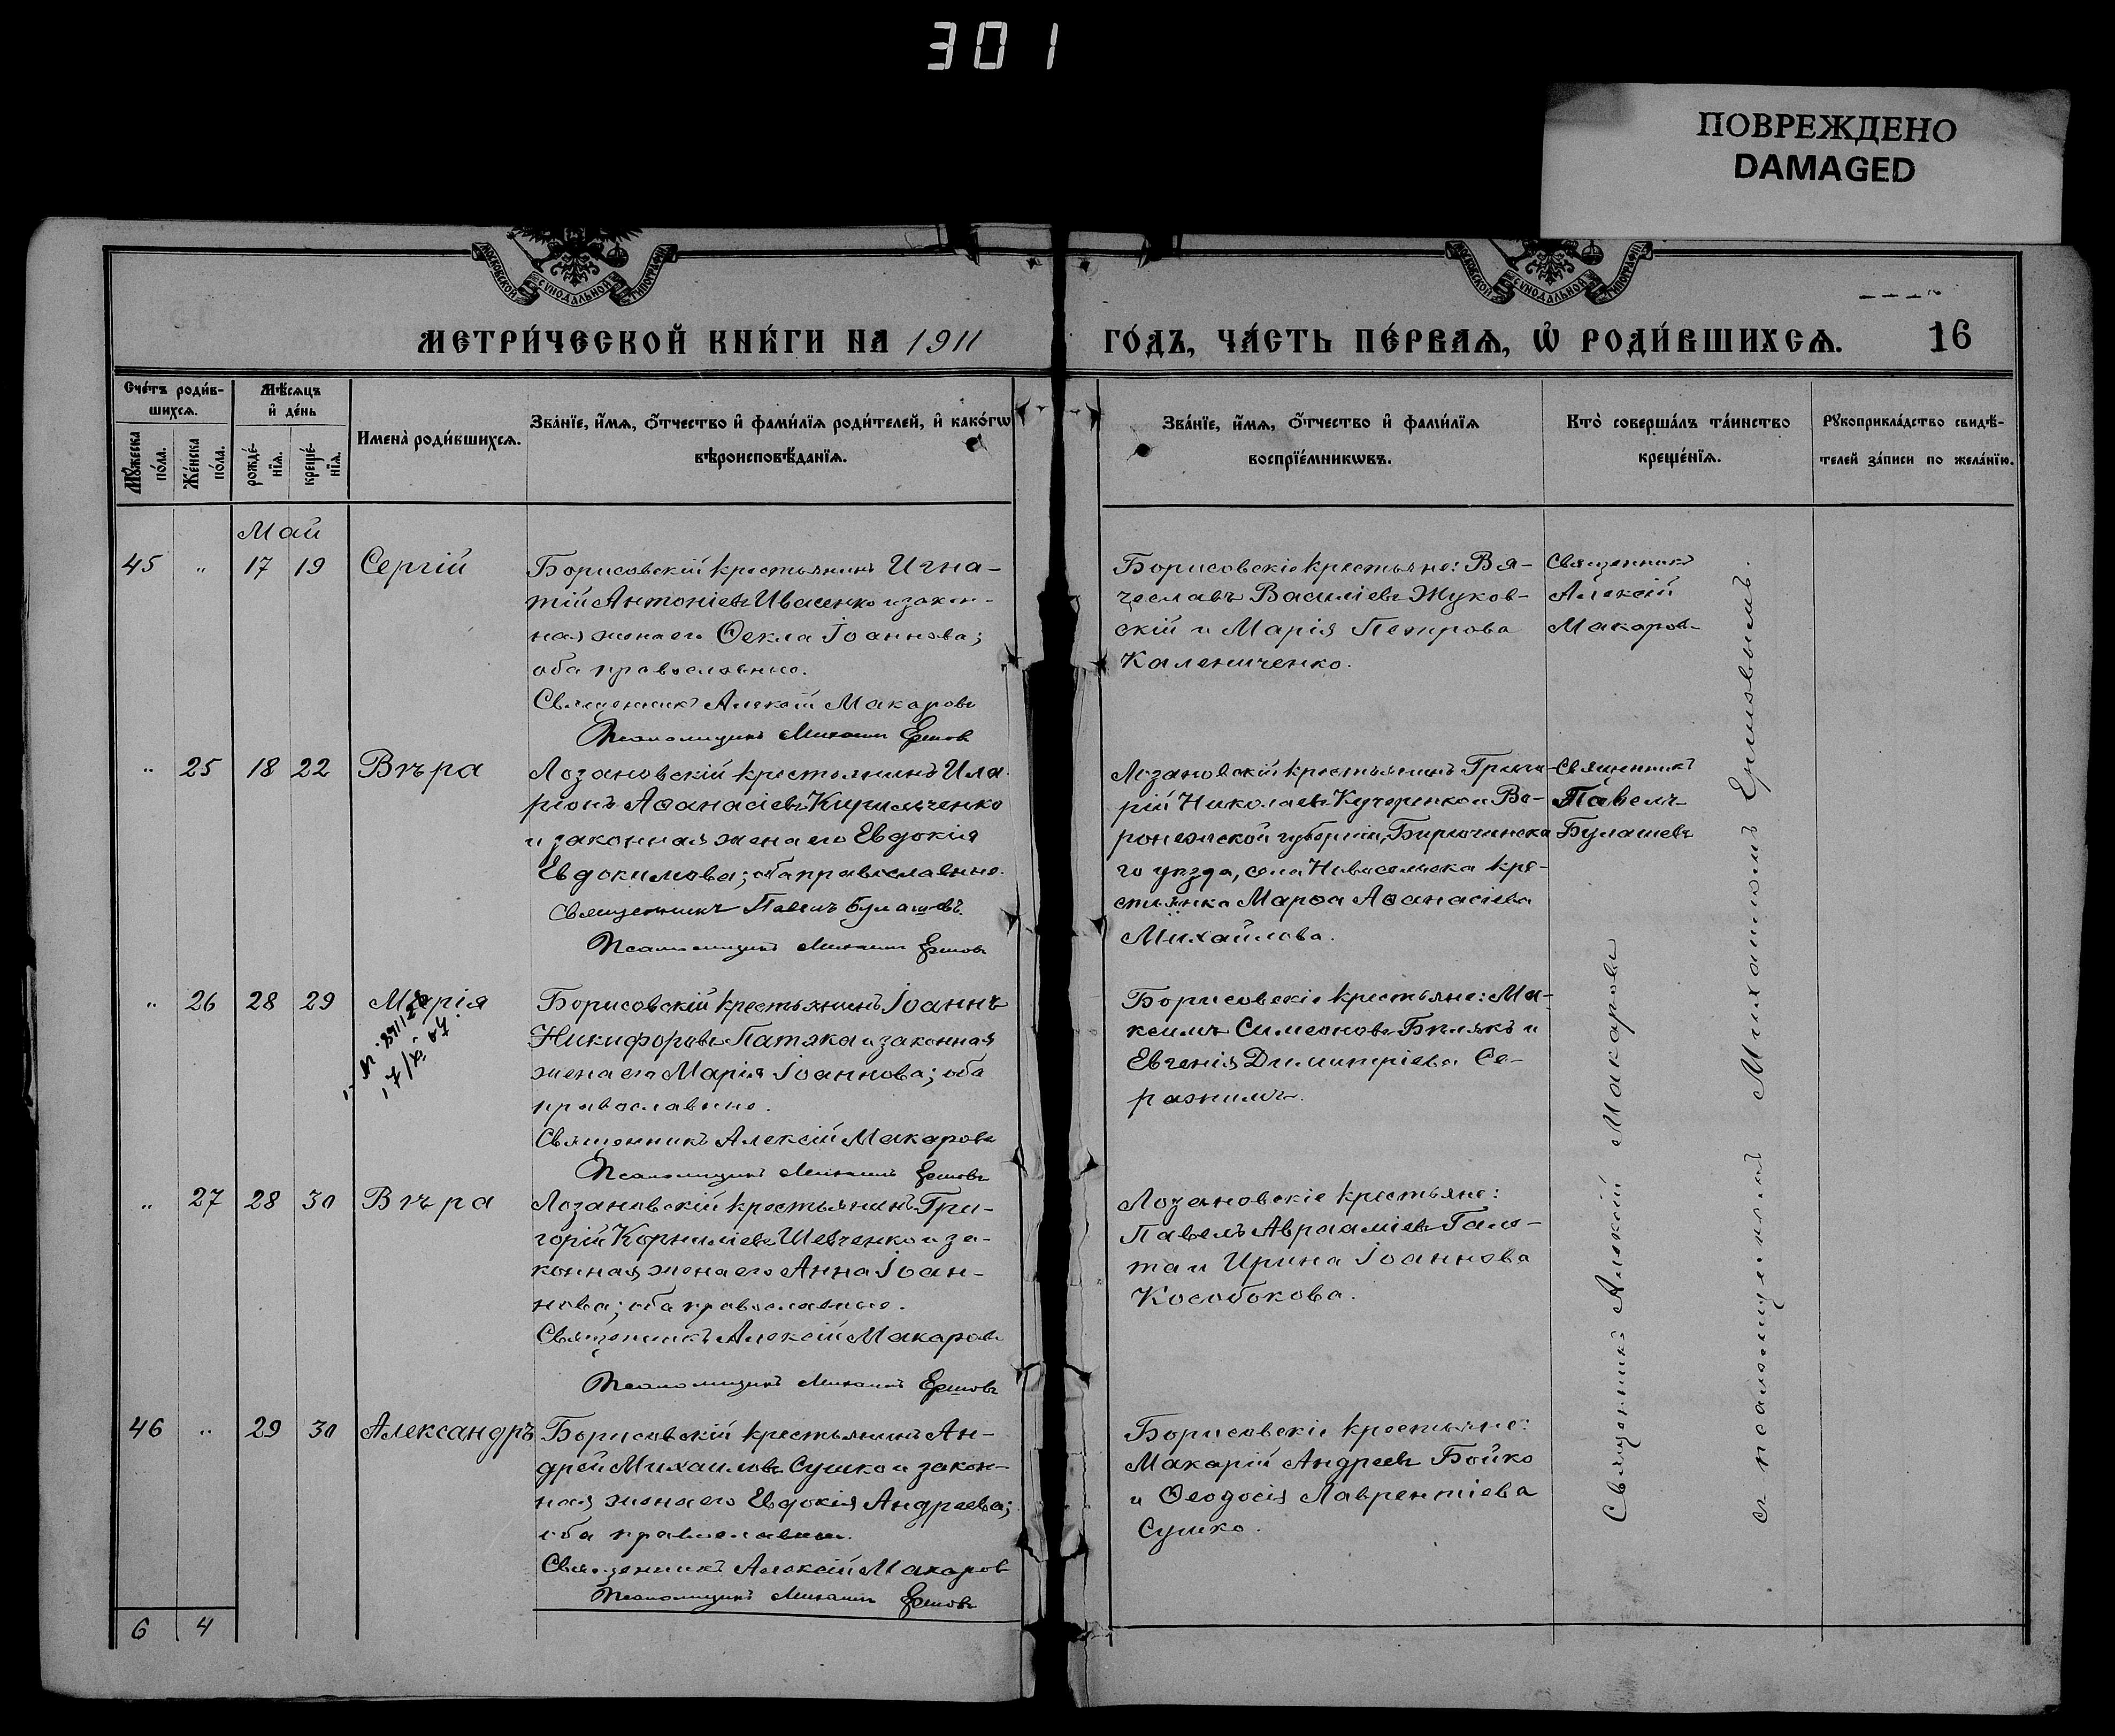 301
ПОВРЕЖДЕНО
DAMAGED
МОСКОВСКОЙ СѴНОДАЛЬНОЙ ТИПОГРАФІИ
МОСКОВСКОЙ СѴНОДАЛЬНОЙ ТИПОГРАФІИ
МЕТРИ́ЧЕСКОЙ КНИ́ГИ НА 1911
ГО́ДЪ, ЧА́СТЬ ПЕ́РВАѦ, Ѡ҆ РОДИ́ВШИХСѦ.
16
Сче́тъ роди́в-
шихсѧ.
Мꙋ́жеска
по́ла.
Же́нска
по́ла.
Мѣ́сѧцъ
и҆ де́нь
рожде́-
нїѧ.
креще́-
нїѧ.
Имена̀ роди́вшихсѧ.
Зва́нїе, и҆́мѧ, ѻ҆́тчество и҆ фами́лїѧ роди́телей, и҆ како́гѡ
вѣроисповѣ́данїѧ.
Зва́нїе, и҆́мѧ, ѻ҆́тчество и҆ фами́лїѧ
воспрїе́мникѡвъ.
Кто̀ соверша́лъ та́инство
креще́нїѧ.
Рꙋкоприкла́дство свидѣ́-
телей за́писи по жела́нїю.
Май
45 " 17 19 Сергій
Борисовскій крестьянинъ Игна-
тій Антоніевъ Иваненко и закон-
ная жена его Ѳекла Іоаннова;
оба православные.
Священникъ Алексій Макаровъ
Псаломщикъ Михаилъ Ершовъ
Борисовскіе крестьяне: Вя-
чеславъ Василіевъ Жуков-
скій и Марія Петрова
Калениченко.
Священникъ
Алексій
Макаровъ
" 25 18 22 Вѣра
Лозановскій крестьянинъ Ила-
ріонъ Аѳанасіевъ Кирильченко
и законная жена его Евдокія
Евдокимова; оба православные.
Священникъ Павелъ Булашевъ.
Псаломщикъ Михаилъ Ершовъ
Лозановскій крестьянинъ Григо-
рій Николаевъ Кучеренко и Во-
ронежской губерніи, Бирючинска
го уѣзда, села Новоселовка кре-
стьянка Марѳа Аѳанасіева
Михайлова.
Священникъ
Павелъ
Булашевъ
" 26 28 29 Марія
Борисовскій крестьянинъ Іоаннъ
Никифоровъ Патяка и законная
жена его Марія Іоаннова; оба
православные.
Священникъ Алексій Макаровъ
Псаломщикъ Михаилъ Ершовъ
Борисовскіе крестьяне: Ма-
ксимъ Симеоновъ Бѣлякъ и
Евгенія Димитріева Се-
ражимъ.
" 27 28 30 Вѣра
Лозановскій крестьянинъ Гри-
горій Корниліевъ Шевченко и за-
конная жена его Анна Іоан-
нова; оба православные.
Священникъ Алексій Макаровъ
Псаломщикъ Михаилъ Ершовъ
Лозановскіе крестьяне:
Павелъ Авраміевъ Галя-
та и Ирина Іоаннова
Кособокова.
46 " 29 30 Александръ
Борисовскій крестьянинъ Ан-
дрей Михаиловъ Сушко и закон-
ная жена его Евдокія Андреева;
оба православные.
Священникъ Алексій Макаровъ
Псаломщикъ Михаилъ Ершовъ
Борисовскіе крестьяне:
Макарій Андреевъ Бойко
и Ѳеодосія Лаврентіева
Сушко.
Священникъ Алексій Макаровъ
съ псаломщикомъ Михаиломъ Ершовымъ.
6 4